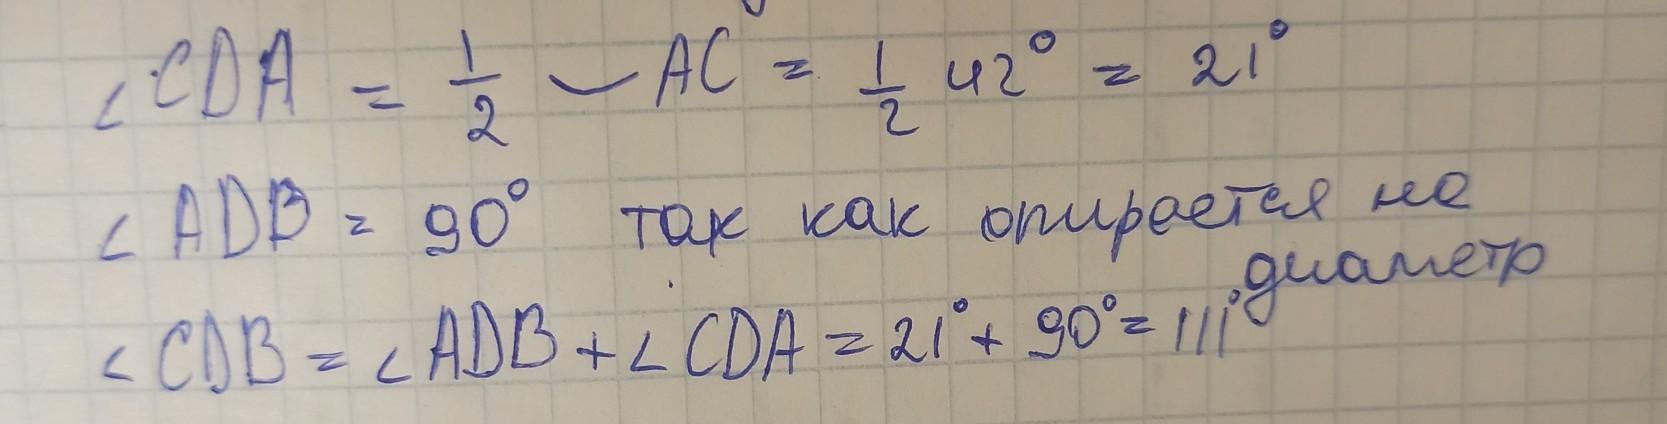 ∠CDA = 1/2 ⌣ AC = 1/2 42° = 21°
∠ADB = 90° так как опирается на
диаметр
∠CDB = ∠ADB + ∠CDA = 21° + 90° = 111°